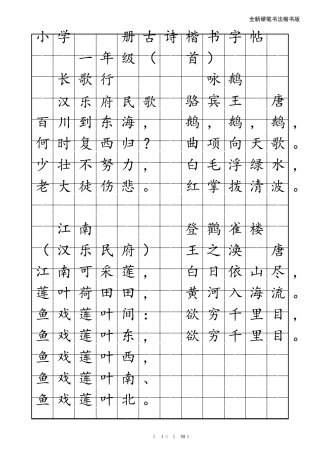 全新硬笔书法楷书版
小学 册古诗楷书字帖
一年级（ 首）
长歌行 咏鹅
汉乐府民歌 骆宾王 唐
百川到东海， 鹅，鹅，鹅，
何时复西归？ 曲项向天歌。
少壮不努力， 白毛浮绿水，
老大徒伤悲。 红掌拨清波。
江南 登鹳雀楼
（汉乐民府） 王之涣 唐
江南可采莲， 白日依山尽，
莲叶荷田田， 黄河入海流。
鱼戏莲叶间： 欲穷千里目。
鱼戏莲叶东， 欲穷千里目。
鱼戏莲叶西，
鱼戏莲叶南、
鱼戏莲叶北。